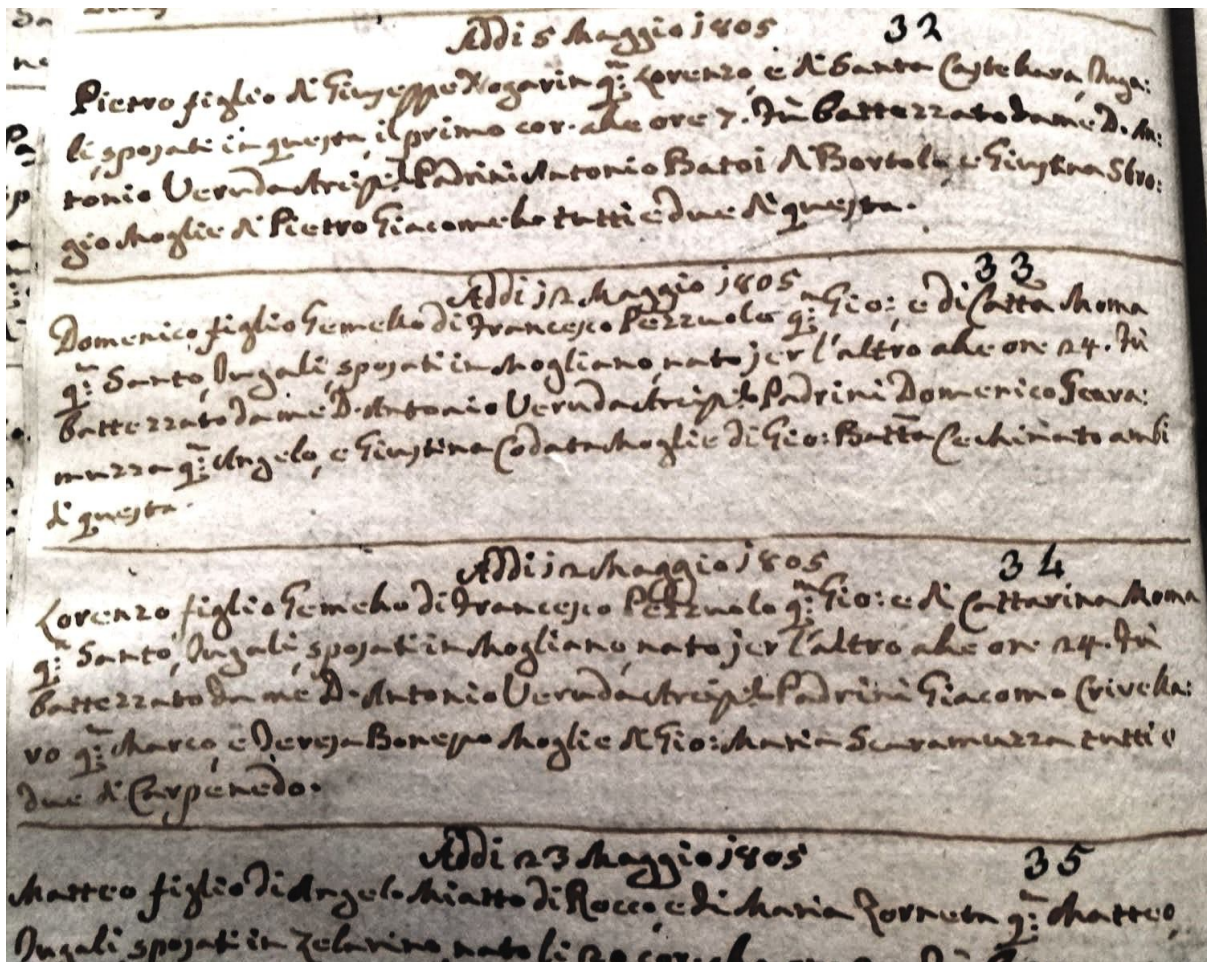 Addi 5 Maggio 1805 32
Pietro figlio di Giuseppe Nogarin q:m Lorenzo, e di Santa Castellara, Juga:
li, sposati in questa, il primo cor. alle ore 7. Fù battezzato da me D. An:
tonio Veruda Padrini Antonio Batoi di Bortolo, e Giustina Sbro:
gio Moglie di Pietro Giacomello tutti e due di questa.
Addi 12 Maggio 1805 33
Domenico figlio Gemello di Francesco Pezzuolo q:m Gio:, e di Catta Moma
q:m Santo, Jugali, sposati in Mogliano, nato jer l'altro alle ore 24. Fù
battezzato da me D. Antonio Veruda Padrini Domenico Scara:
muzza q:m Angelo, e Giustina Codata Moglie di Gio: Batta Cechinato ambi
di questa.
Addi 12 Maggio 1805 34
Lorenzo figlio Gemello di Francesco Pezzuolo q:m Gio: e di Cattarina Moma
q:m Santo, Jugali, sposati in Mogliano, nato jer l'altro alle ore 24. Fù
battezzato da me D. Antonio Veruda Padrini Giacomo Crivella:
ro q:m Marco, e Teresa Bonesso Moglie di Gio: Maria Scaramuzza tutti e
due di Carpenedo.
Addi 23 Maggio 1805 35
Matteo figlio di Angelo Miatto di Rocco, e di Maria Zorneta q:m Matteo,
Jugali, sposati in Zelarino, nato li 20